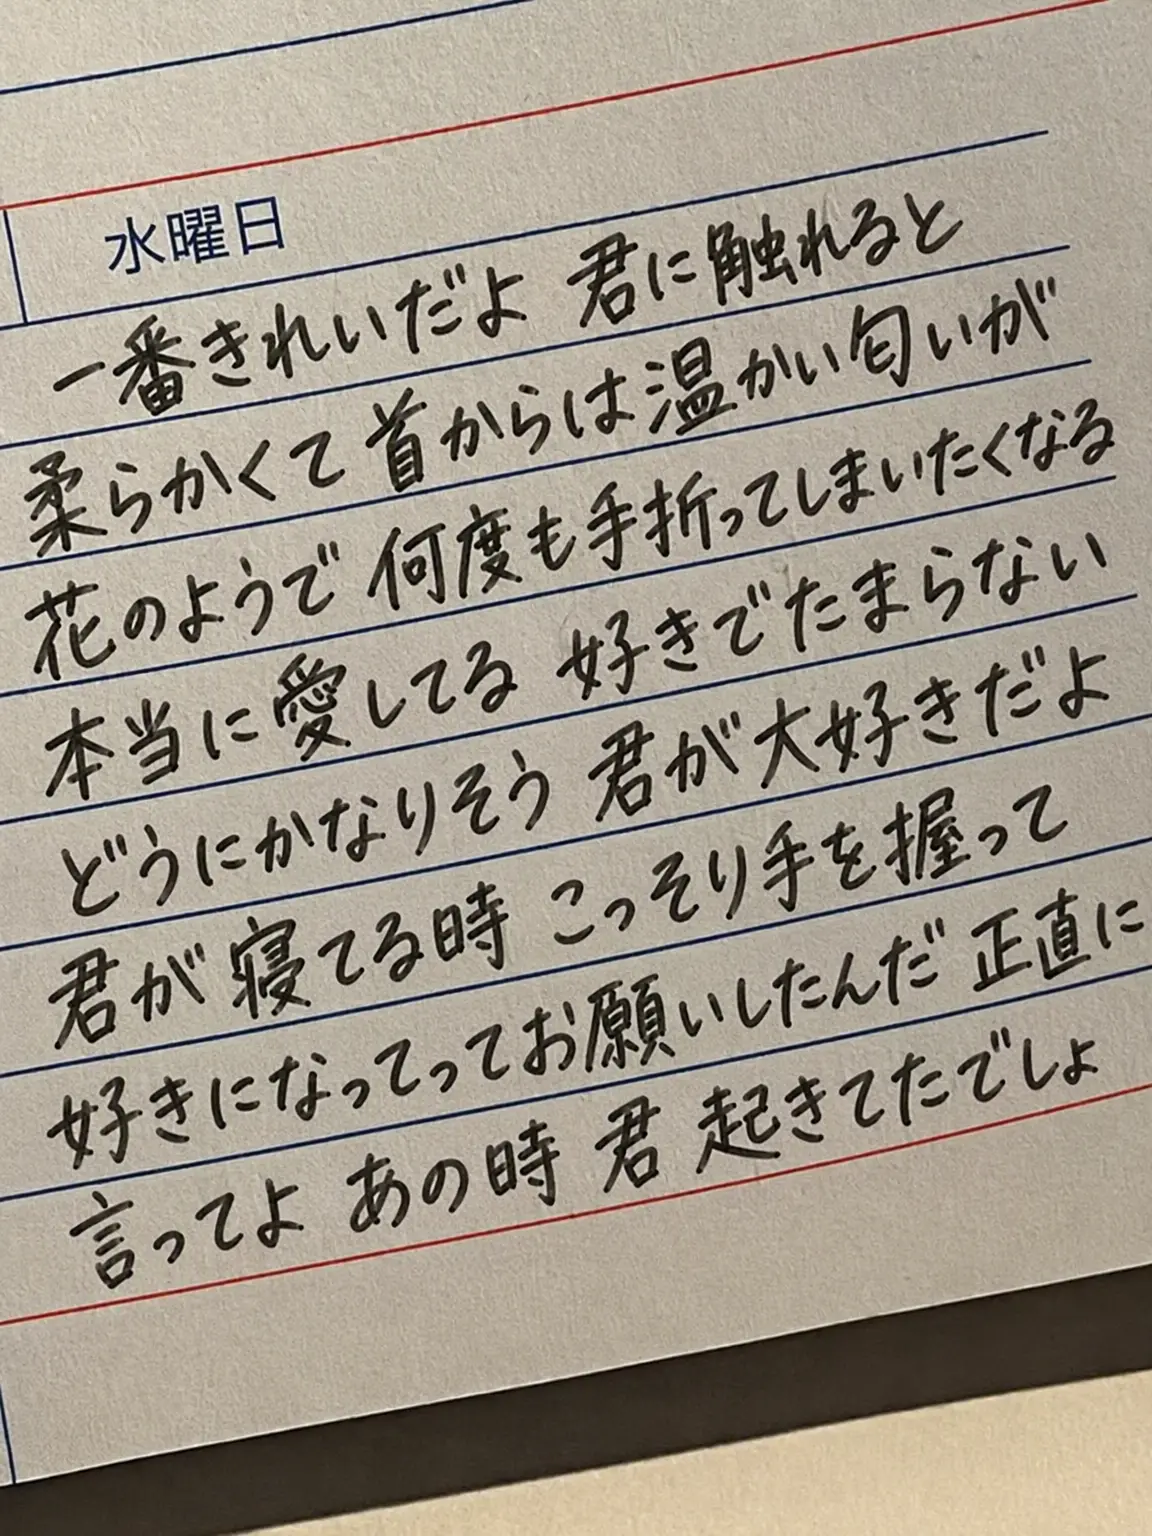 水曜日
一番きれいだよ 君に触れると
柔らかくて 首からは温かい匂いが
花のようで 何度も手折ってしまいたくなる
本当に愛してる 好きでたまらない
どうにかなりそう 君が大好きだよ
君が寝てる時 こっそり手を握って
好きになってってお願いしたんだ 正直に
言ってよ あの時 君 起きてたでしょ